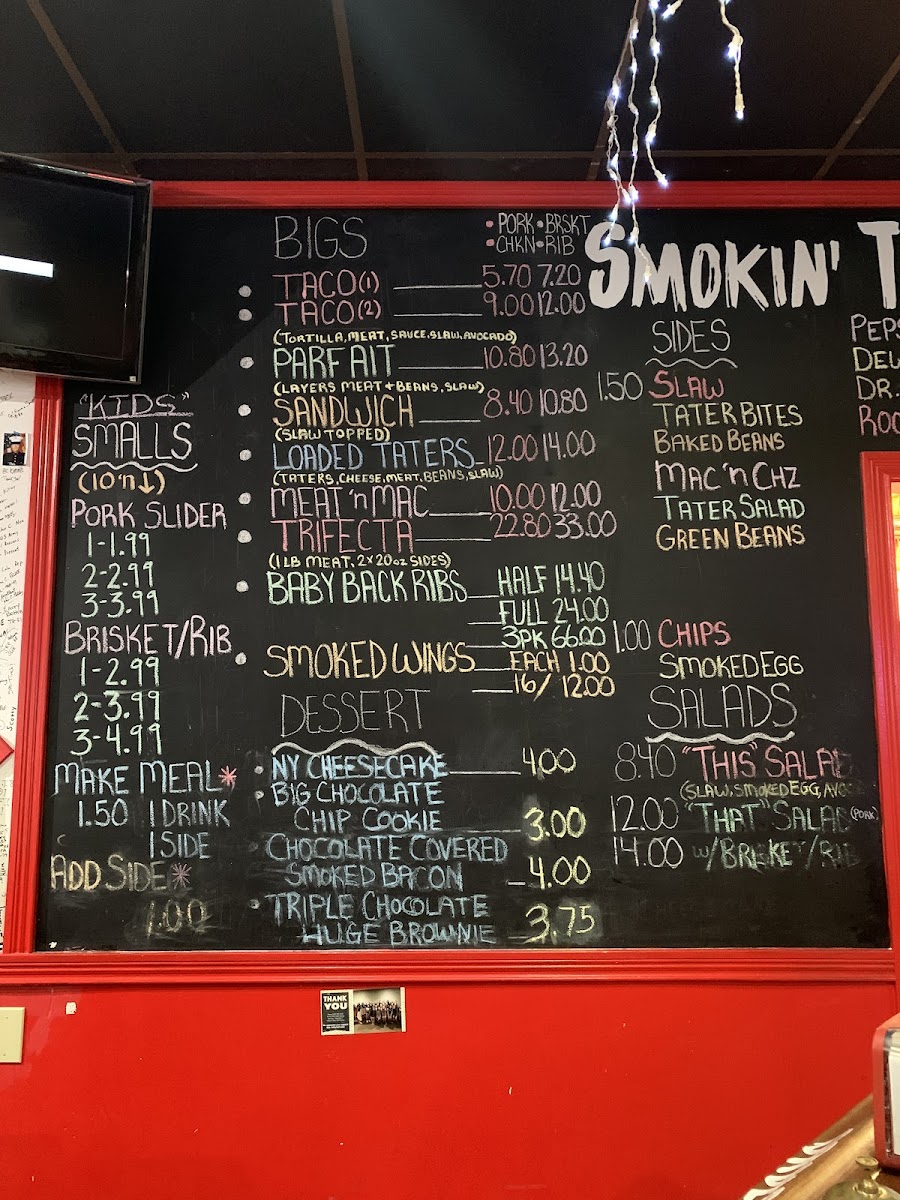 BIGS
• PORK • BRSKT
• CHKN • RIB
TACO (1) 5.70 7.20
TACO (2) 9.00 12.00
(TORTILLA, MEAT, SAUCE, SLAW, AVOCADO)
PARFAIT 10.80 13.20
(LAYERS MEAT + BEANS, SLAW)
SANDWICH 8.40 10.80
(SLAW TOPPED)
LOADED TATERS 12.00 14.00
(TATERS, CHEESE, MEAT, BEANS, SLAW)
MEAT 'n MAC 10.00 12.00
TRIFECTA 22.80 33.00
(1 LB MEAT, 2 x 20oz SIDES)
BABY BACK RIBS HALF 14.40
FULL 24.00
3PK 66.00
SMOKED WINGS EACH 1.00
16/ 12.00
"KIDS"
SMALLS
(10 'n ↓)
PORK SLIDER
1-1.99
2-2.99
3-3.99
BRISKET/RIB
1-2.99
2-3.99
3-4.99
MAKE MEAL*
1.50 1 DRINK
1 SIDE
ADD SIDE*
1.00
DESSERT
NY CHEESECAKE 4.00
BIG CHOCOLATE
CHIP COOKIE 3.00
CHOCOLATE COVERED
SMOKED BACON 4.00
TRIPLE CHOCOLATE
HUGE BROWNIE 3.75
SMOKIN' T
SIDES
1.50 SLAW
TATER BITES
BAKED BEANS
MAC 'n CHZ
TATER SALAD
GREEN BEANS
1.00 CHIPS
SMOKED EGG
SALADS
8.40 "THIS" SALAD
(SLAW, SMOKED EGG, AVO
12.00 "THAT" SALAD (PORK)
14.00 w/BRISKET/RIB
PEPS
DEW
DR.
ROO
THANK
YOU